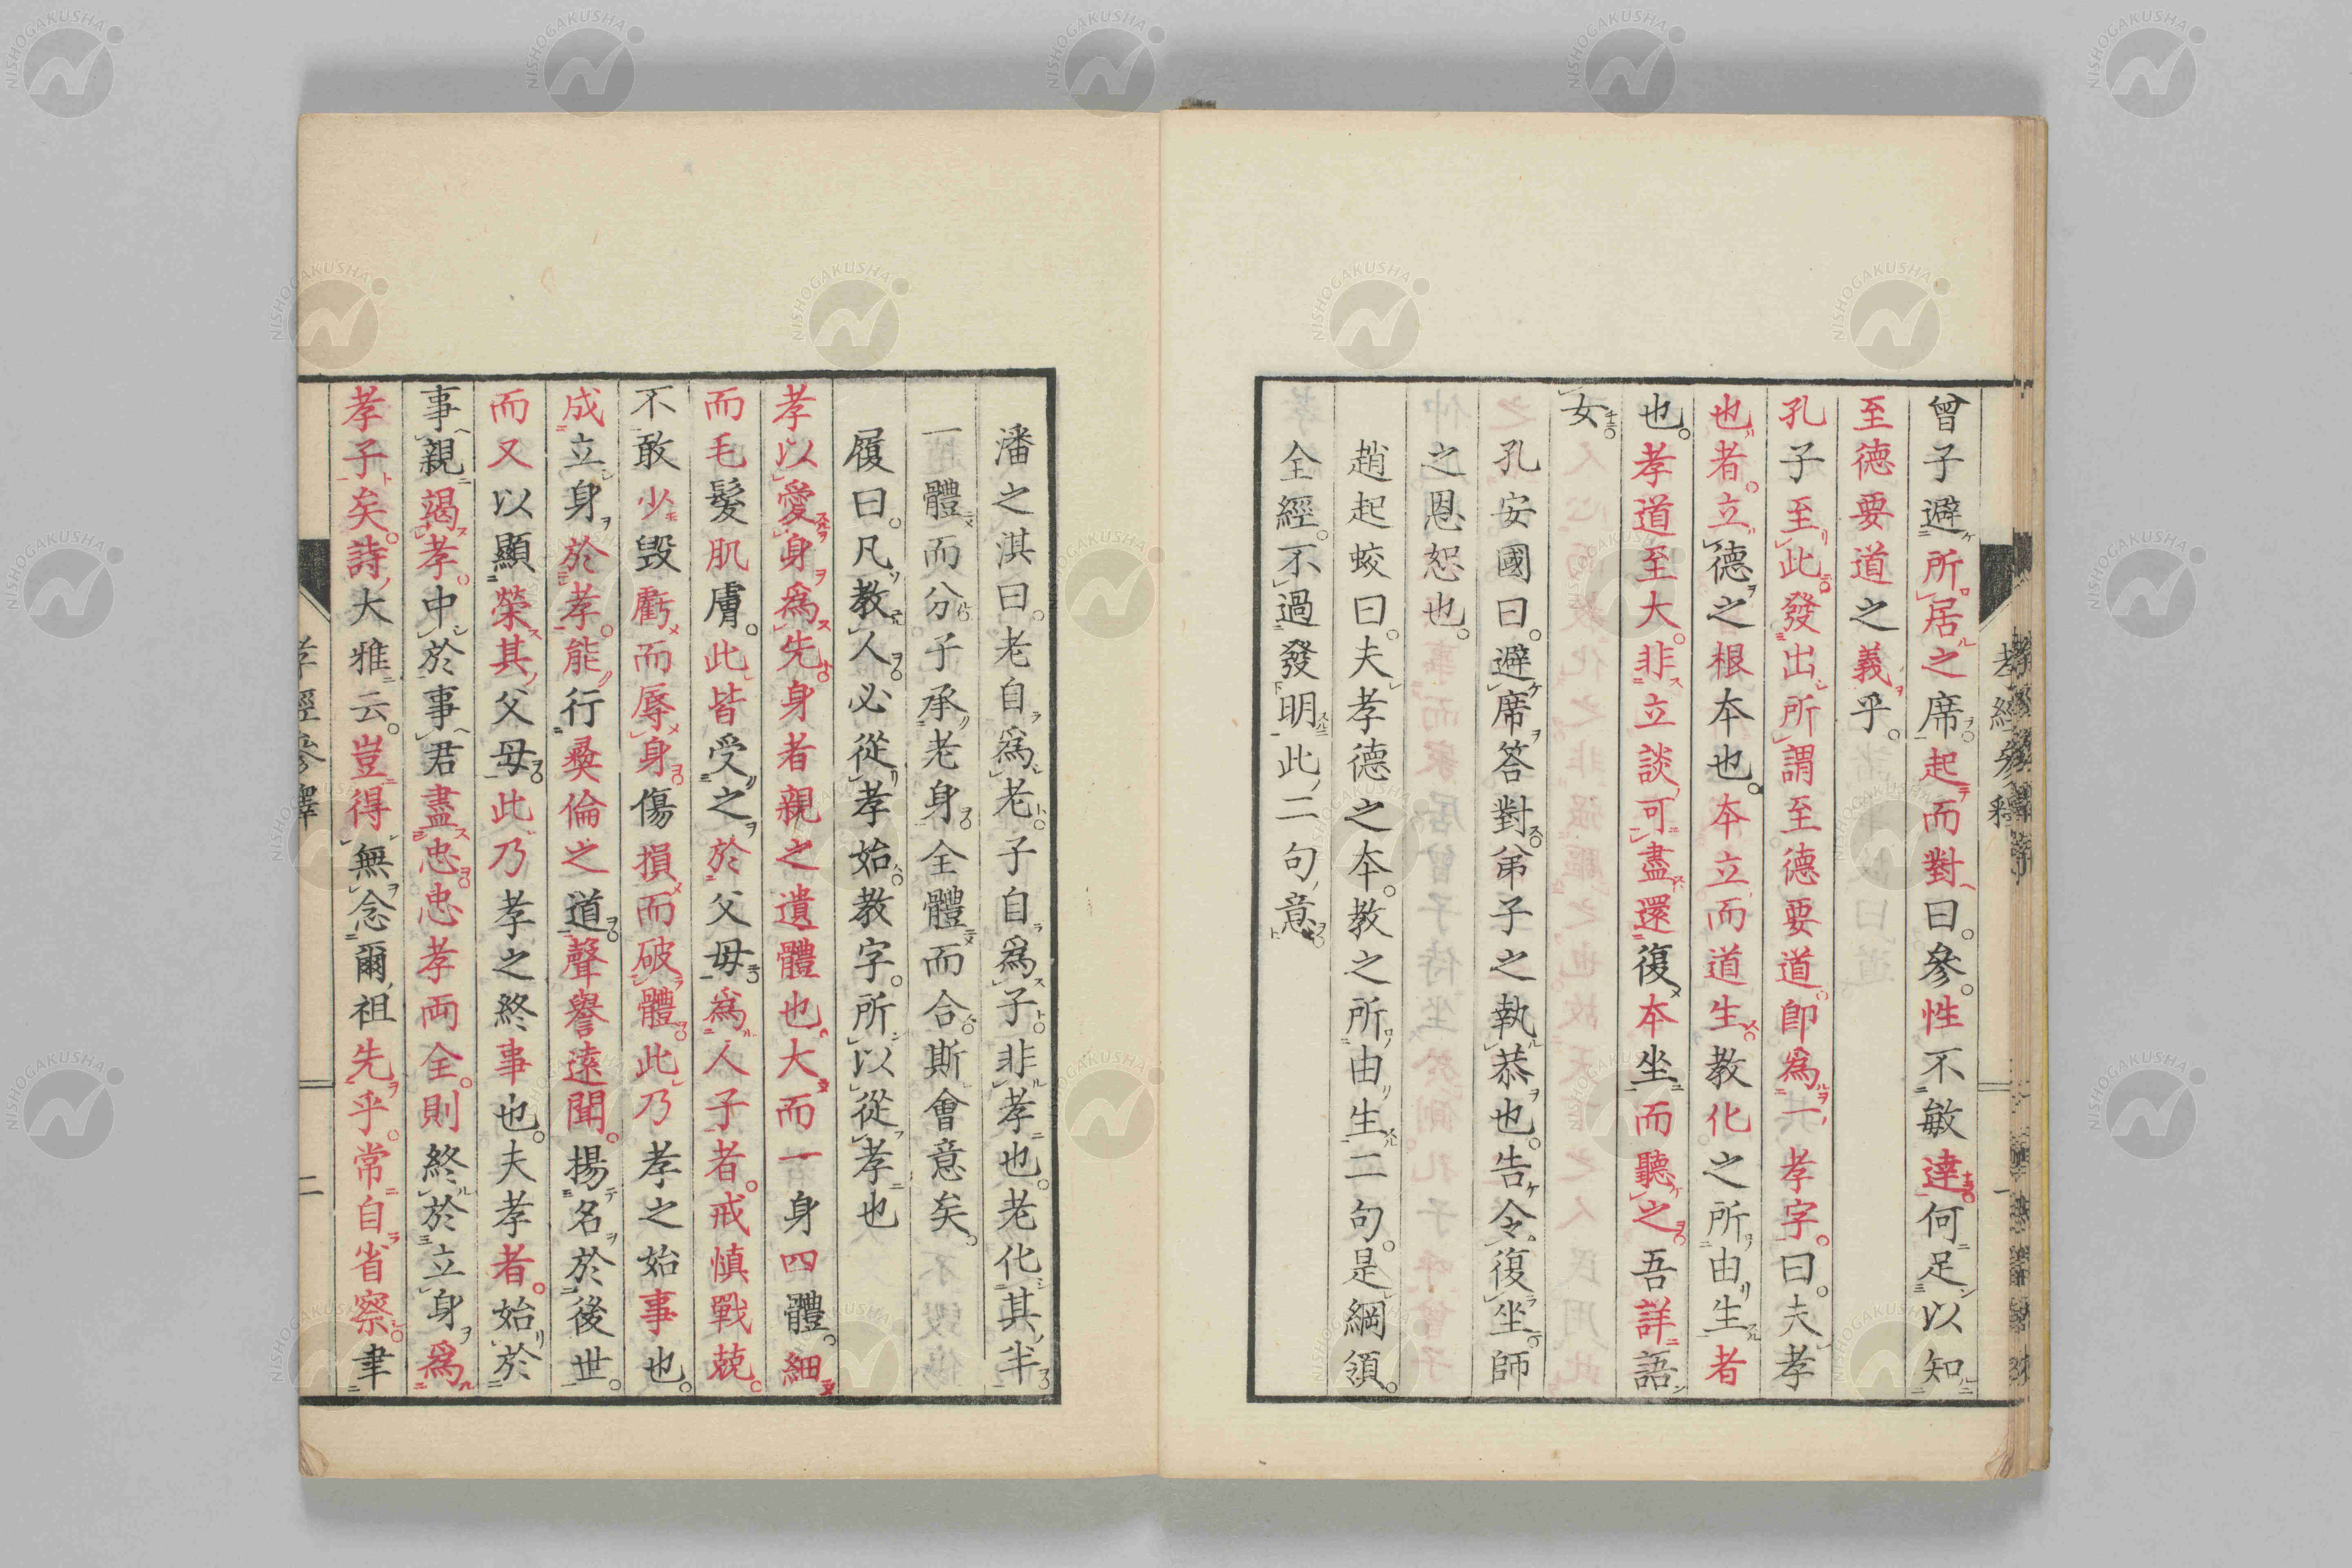 曾子避所居之席起而對曰參性不敏達何足以知
至德要道之義乎
孔子至此發出所謂至德要道卽爲一孝字曰夫孝
也者立德之根本也本立而道生教化之所由生者
也孝道至大非立談可盡還復本坐而聽之吾詳語
女
孔安國曰避席答對弟子之執恭也告令復坐師
之恩恕也
趙起蛟曰夫孝德之本教之所由生二句是綱領
全經不過發明此二句意
潘之淇曰老自爲老子自爲子非孝也老化其半
一體而分子承老身全體而合斯會意矣
履曰凡教人必從孝始教字所以從孝也
孝以愛身爲先身者親之遺體也大而一身四體細
而毛髮肌膚此皆受之於父母爲人子者戒愼戰兢
不敢少毀虧而辱身傷損而破體此乃孝之始事也
成立身於孝能行彜倫之道聲譽遠聞揚名於後世
而又以顯榮其父母此乃孝之終事也夫孝者始於
事親竭孝中於事君盡忠忠孝両全則終於立身爲
孝子矣詩大雅云豈得無念爾祖先乎常自省察聿
孝經參釋
二
NISHOGAKUSHA